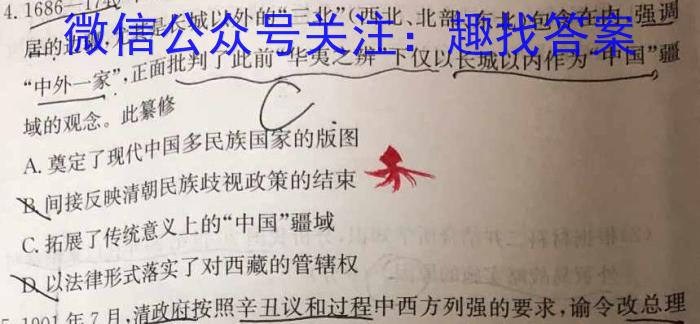 4. 1686—17
是长城以外的“三北”(西北、北部、东北)包含在内,强调
微信公众号关注:趣找答案
居的
“中外一家”,正面批判了此前“华夷之辨”下仅以长城以内作为“中国”疆
域的观念。此纂修
C
A. 奠定了现代中国多民族国家的版图
B. 间接反映清朝民族歧视政策的结束
C. 拓展了传统意义上的“中国”疆域
D. 以法律形式落实了对西藏的管辖权
1901年7月,清政府按照辛丑议和过程中西方列强的要求,谕令改总理